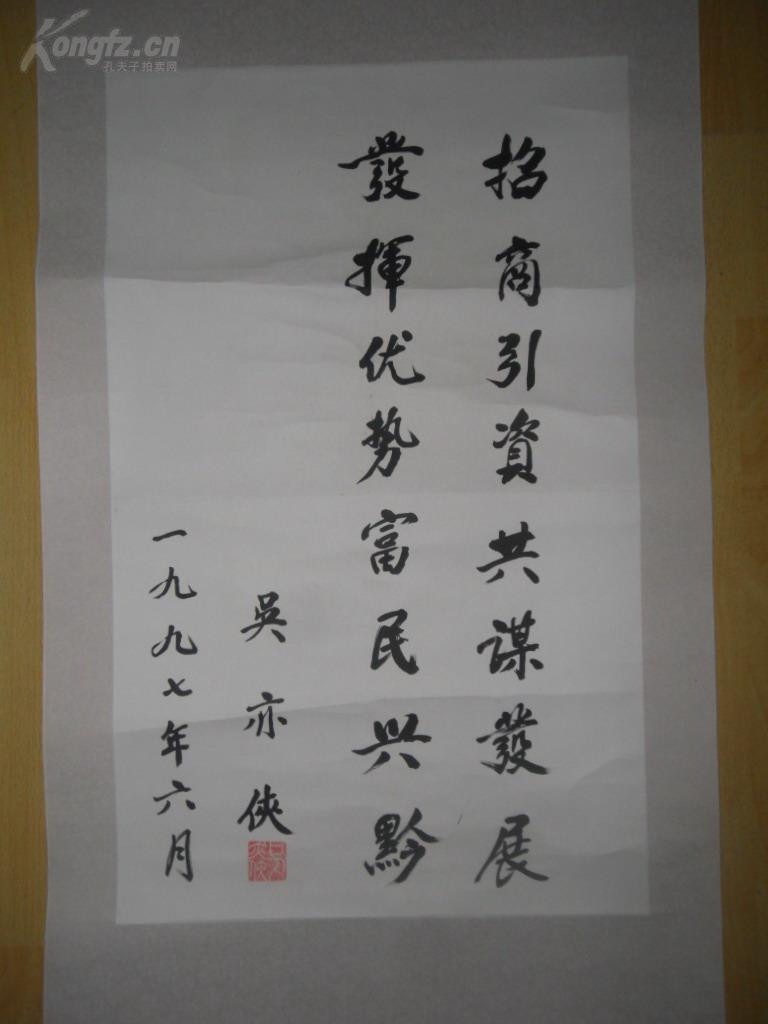 Kongfz.cn
孔夫子拍卖网
招商引資共谋發展
發揮优势富民兴黔
吳亦俠
一九九七年六月